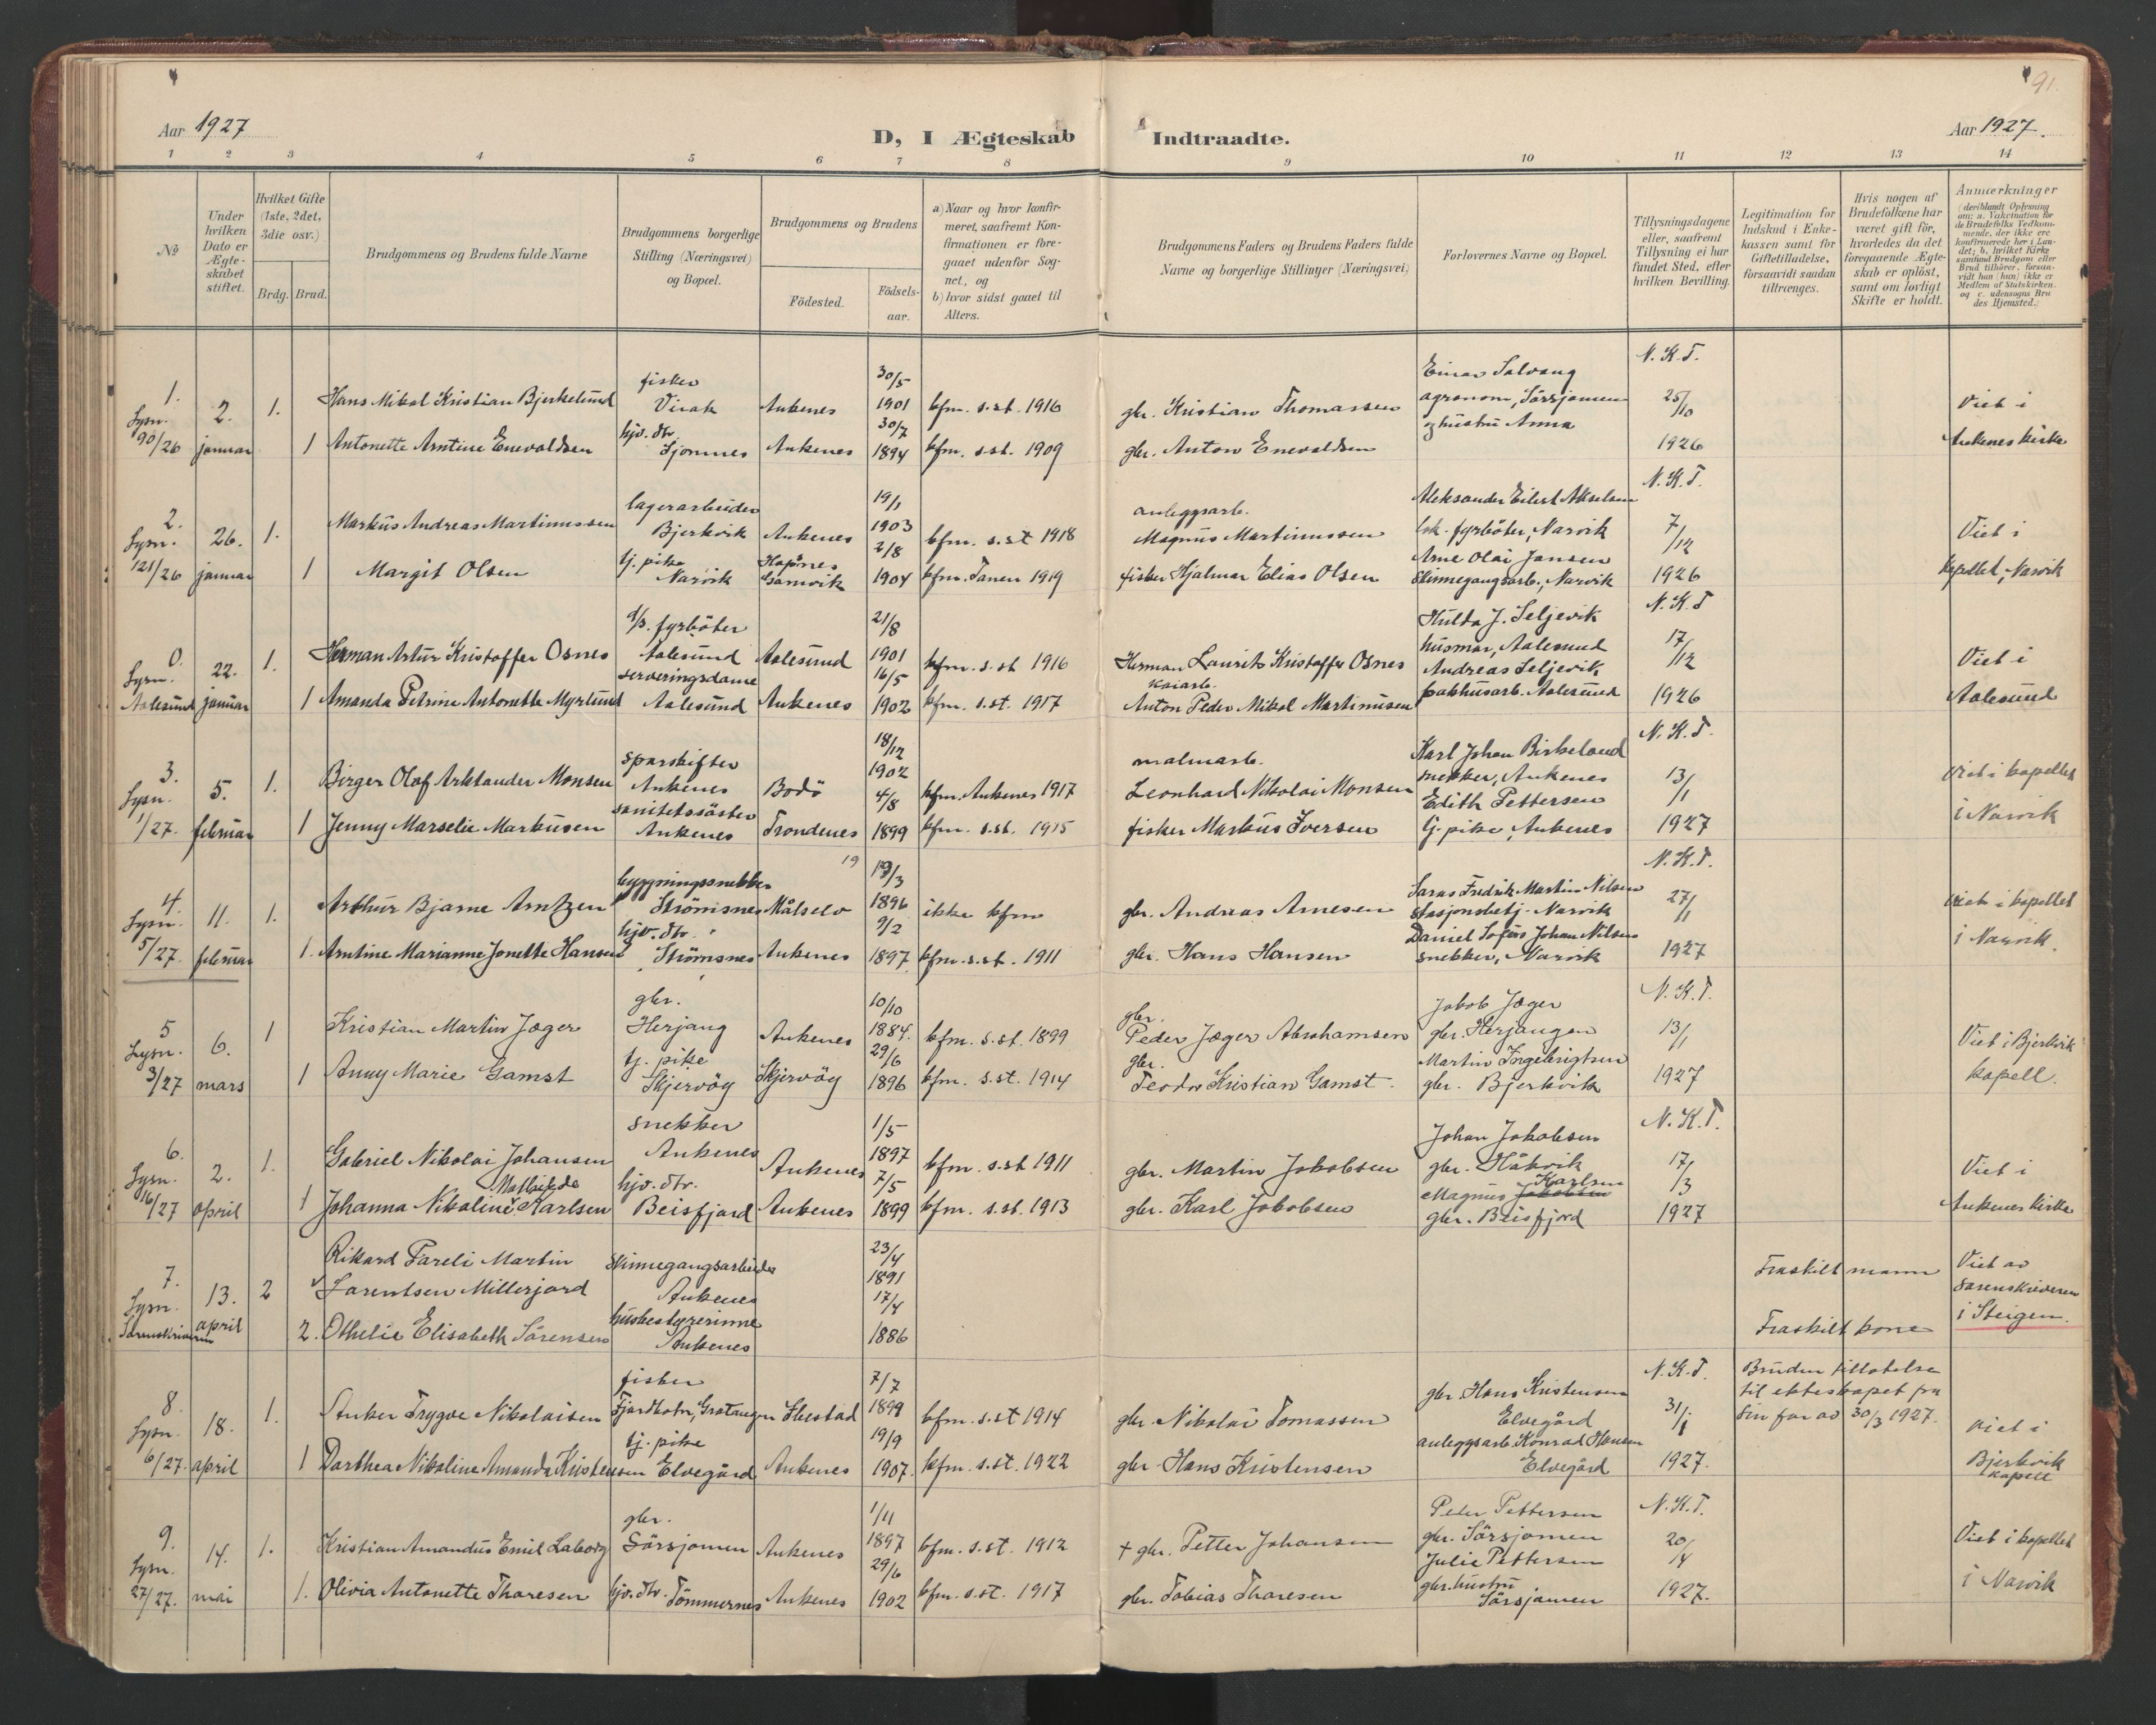 91.
Aar 1927
D, I Ægteskab Indtraadte.
Aar 1927.
1 2 3 4 5 6 7 8 9 10 11 12 13 14
No
Under hvilken Dato er Ægteskabet stiftet.
Hvilket Gifte (1ste, 2det, 3die osv.)
Brdg. Brud.
Brudgommens og Brudens fulde Navne
Brudgommens borgerlige Stilling (Næringsvei) og Bopæl.
Brudgommens og Brudens
Födested.
Födselsaar.
a) Naar og hvor konfirmeret, saafremt Konfirmationen er foregaaet udenfor Sognet, og
b) hvor sidst gaaet til Alters.
Brudgommens Faders og Brudens Faders fulde Navne og borgerlige Stillinger (Næringsvei)
Forlovernes Navne og Bopæl.
Tillysningsdagene eller, saafremt Tillysning ei har fundet Sted, efter hvilken Bevilling.
Legitimation for Indskud i Enkekassen samt for Giftetilladelse, forsaavidt saadan tiltrænges.
Hvis nogen af Brudefolkene har været gift för, hvorledes da det foregaaende Ægteskab er oplöst, samt om lovligt Skifte er holdt.
Anmærkninger (deriblandt Oplysning om: a. Vakcination for de Brudefolks Vedkommende, der ikke ere konfirmerede her i Landet; b. hvilket Kirkesamfund Brudgom eller Brud tilhörer, forsaavidt han (hun) ikke er Medlem af Statskirken. og c. udensogns Brudes Hjemsted.)
1. Lysn. 90/26
2. januar
1. Hans Mikal Kristian Bjerkelund
fisker Virak
Ankenes
30/5 1901
kfm. s.st. 1916
gbr. Kristian Thomassen
Einar Salvang agronom, Sörsjomen og hustru Anna
N. K. T. 25/10 1926
Viet i Ankenes kirke
1 Antonette Arntine Enevoldsen
hjv. dtr. Sjomnes
Ankenes
30/7 1894
kfm. s.st. 1909
gbr. Anton Enevoldsen
2. Lysn. 121/26
26. januar
1. Markus Andreas Martinussen
lagerarbeider Bjerkvik
Ankenes
19/1 1903
kfm. s.st 1918
anleggsarb. Magnus Martinussen
Aleksander Eilert Akselsen
lok. fyrböter, Narvik
N. K. T. 7/12 1926
Viet i kapellet, Narvik
1 Margit Olsen
tj. pike Narvik
Hopsnes Gamvik
2/8 1904
kfm. Tanen 1919
fisker Hjalmar Elias Olsen
Arne Olai Jansen
skinnegangsarb., Narvik
0. Lysn. Aalesund
22. januar
1. Herman Artur Kristoffer Osnes
d/s. fyrböter Aalesund
Aalesund
21/8 1901
kfm. s.st 1916
Herman Laurits Kristoffer Osnes
Hulda J. Seljevik
husmor, Aalesund
N. K. T 17/12 1926
Viet i Aalesund
1 Amanda Petrine Antonette Myrlund
serveringsdame Aalesund
Ankenes
16/5 1902
kfm. s.st. 1917
kaiarb. Anton Peder Mikal Martinusen
Andreas Seljevik
pakhusarb. Aalesund
3. Lysn. 1/27.
5. februar
1. Birger Olaf Arktander Monsen
sporskifter Ankenes
Bodö
18/12 1902
kfm. Ankenes 1917
malmarb. Leonhard Nikolai Monsen
Karl Johan Birkeland
snekker, Ankenes
N. K. T. 13/1 1927
viet i kapellet i Narvik
1 Jenny Marselie Markusen
sanitetssöster Ankenes
Trondenes
4/8 1899
kfm. s.st. 1915
fisker Markus Iversen
Edith Pettersen
tj. pike, Ankenes
4. Lysn. 5/27.
11. februar
1. Arthur Bjarne Arntzen
bygningssnekker Strömsnes
Målselv
19
19/3 1896
ikke kfm
gbr. Andreas Arnesen
Fredrik Martin Nilsen
stasjonsbetj. Narvik
N. K. T. 27/1 1927
viet i kapellet i Narvik.
1. Arntine Marianne Jonette Hansen
hjv. dtr. Strömsnes
Ankenes
9/2 1897
kfm. s.st. 1911
gbr. Hans Hansen
Daniel Johan Nilsen
snekker, Narvik
5 Lysn. 3/27
6. mars
1 Kristian Martin Jæger
gbr. Herjang
Ankenes
10/10 1884.
kfm. s.st. 1899
gbr. Peder Jæger Abrahamsen
Jakob Jæger
gbr. Herjangen
N. K. T. 13/1 1927
Viet i Bjerkvik kapell.
1 Anny Marie Gamst
tj. pike Skjervöy
Skjervöy
29/6 1896
kfm. s.st. 1914
gbr. Teodor Kristian Gamst.
Martin Ingebrigtsen
gbr. Bjerkvik
6. Lysn. 16/27
2. april
1. Gabriel Nikolai Johansen
snekker Ankenes
Ankenes
1/5 1897
kfm. s.st 1911
gbr. Martin Jakobsen
Johan Jakobsen
gbr. Håkvik
N. K. T. 17/3 1927
Viet i Ankenes kirke
1 Johanna Nikoline Mathilde Karlsen
hjv. dtr. Beisfjord
Ankenes
7/5 1899
kfm. s.st. 1913
gbr. Karl Jakobsen
Magnus Jakobsen Karlsen
gbr. Beisfjord
7. Lysn. Sorenskriveren
13. april
2 Rikard Fareli Martin Lorentsen Millerjord
skinnegangsarbeider Ankenes
23/4 1891
Fraskilt mann
Viet av sorenskriveren i Steigen.
2. Othelie Elisabeth Sörensen
husbestyrerinne Ankenes
17/4 1886
Fraskilt kone
8. Lysn. 6/27.
18. april
1. Anker Trygve Nikolaisen
fisker Fjordbotn, Gratangen
Ibestad
7/7 1899
kfm. s.st 1914
gbr. Nikolai Tomassen
gbr. Hans Kristensen
Elvegård
N. K. T. 31/1 1927.
Bruden tillatelse til ekteskapet fra sin far av 30/3 1927.
viet i Bjerkvik kapell
1 Dorthea Nikoline Amanda Kristensen
tj. pike Elvegård
Ankenes
19/9 1907.
kfm. s.st. 1922
gbr. Hans Kristensen
anleggsarb. Konrad Hansen
Elvegård
9. Lysn. 27/27.
14. mai
1. Kristian Amandus Emil Laborg
gbr. Sörsjomen
Ankenes
1/11 1897
kfm. s.st. 1912
+ gbr. Petter Johansen
Peter Pettersen
gbr. Sörsjomen
N. K. T. 20/4 1927.
Viet i kapellet i Narvik
1. Olivia Antonette Thoresen
hjv. dtr. Tömmernes
Ankenes
29/6 1902
kfm. s.st. 1917
gbr. Tobias Thoresen
Julie Pettersen
gbr. hustru Sörsjomen